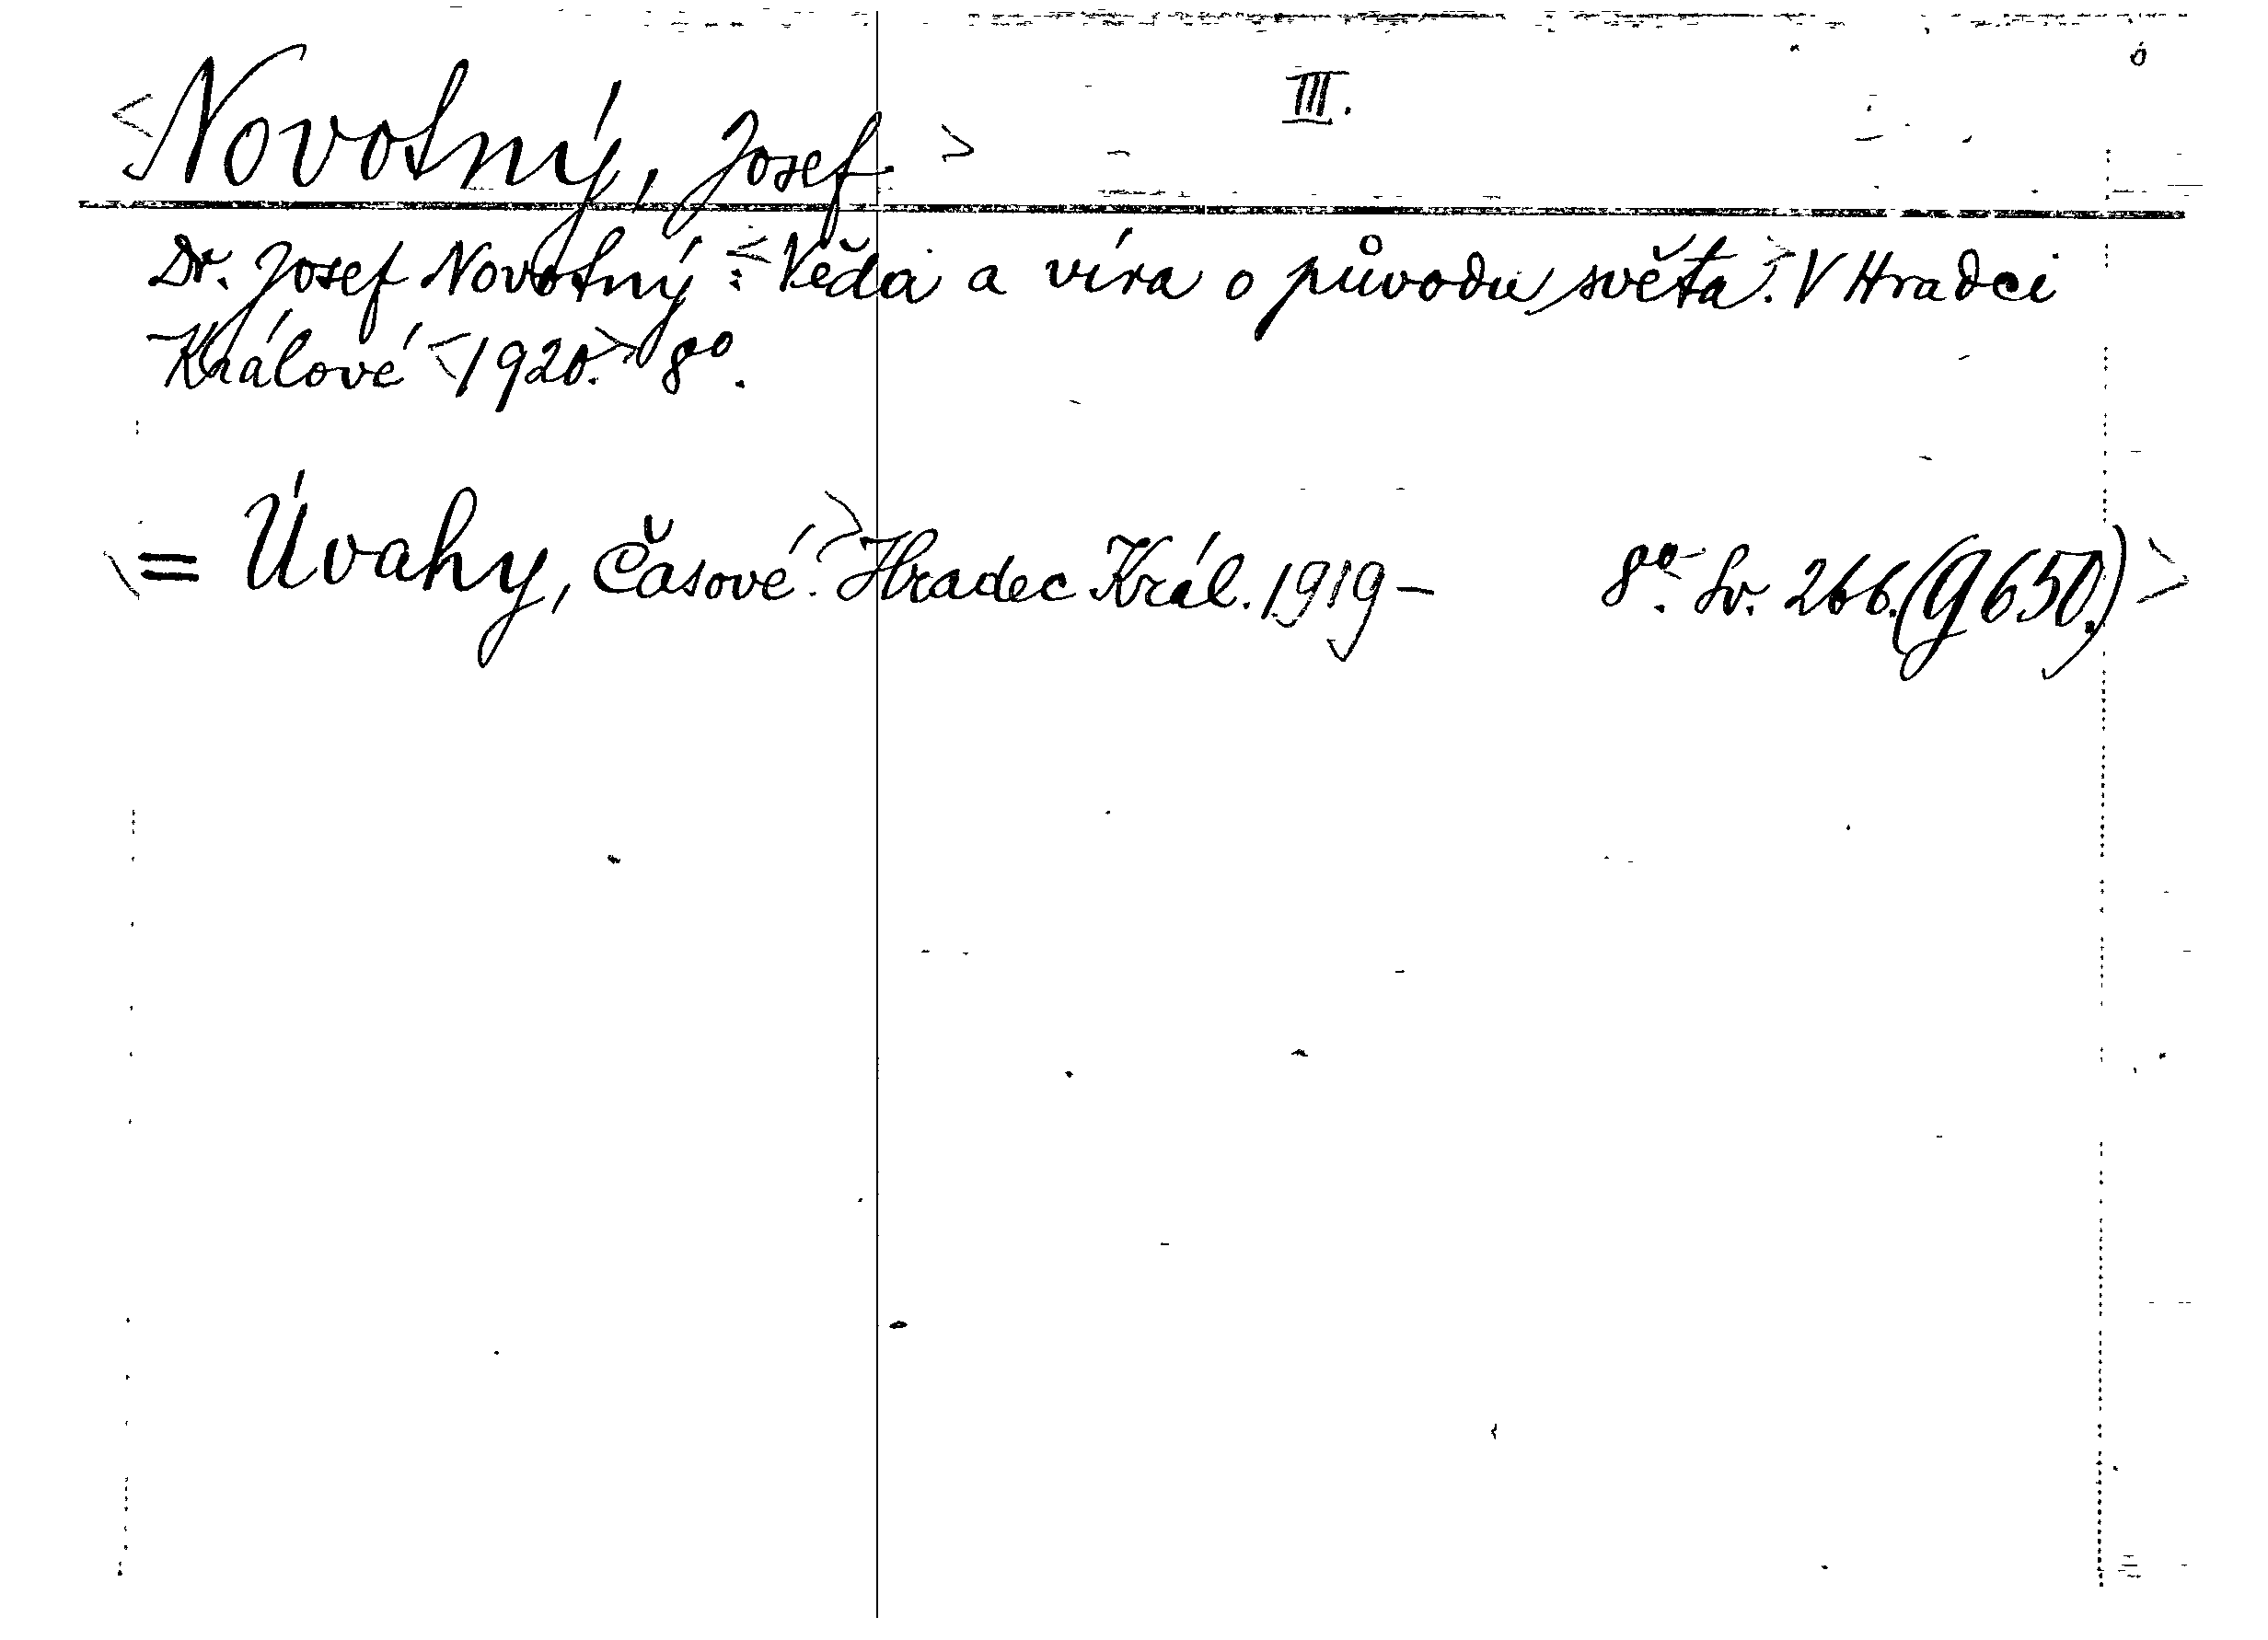 <Novotný, Josef.> III.
Dr. Josef Novotný: <Věda a víra o původu světa.> V Hradci
Králové <1920.> 8°.
<= Úvahy, Časové.> Hradec Král. 1919– 8°. Sv. 266. (9 650.)>